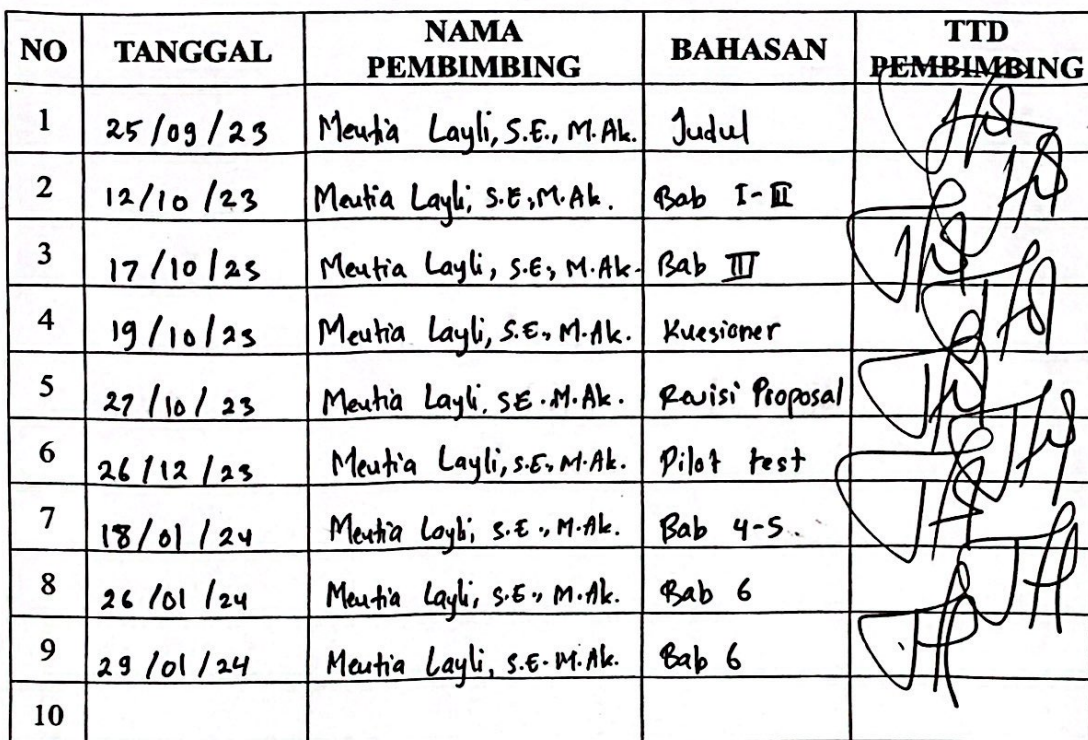 NO TANGGAL NAMA PEMBIMBING BAHASAN TTD PEMBIMBING
1 25/09/23 Meutia Layli, S.E., M.Ak. Judul
2 12/10/23 Meutia Layli, S.E., M.Ak. Bab I-III
3 17/10/23 Meutia Layli, S.E, M.Ak. Bab III
4 19/10/23 Meutia Layli, S.E., M.Ak. Kuesioner
5 27/10/23 Meutia Layli, SE.M.Ak. Revisi Proposal
6 26/12/23 Meutia Layli, S.E., M.Ak. Pilot test
7 18/01/24 Meutia Layli, S.E., M.Ak. Bab 4-5
8 26/01/24 Meutia Layli, S.E., M.Ak. Bab 6
9 29/01/24 Meutia Layli, S.E.M.Ak. Bab 6
10